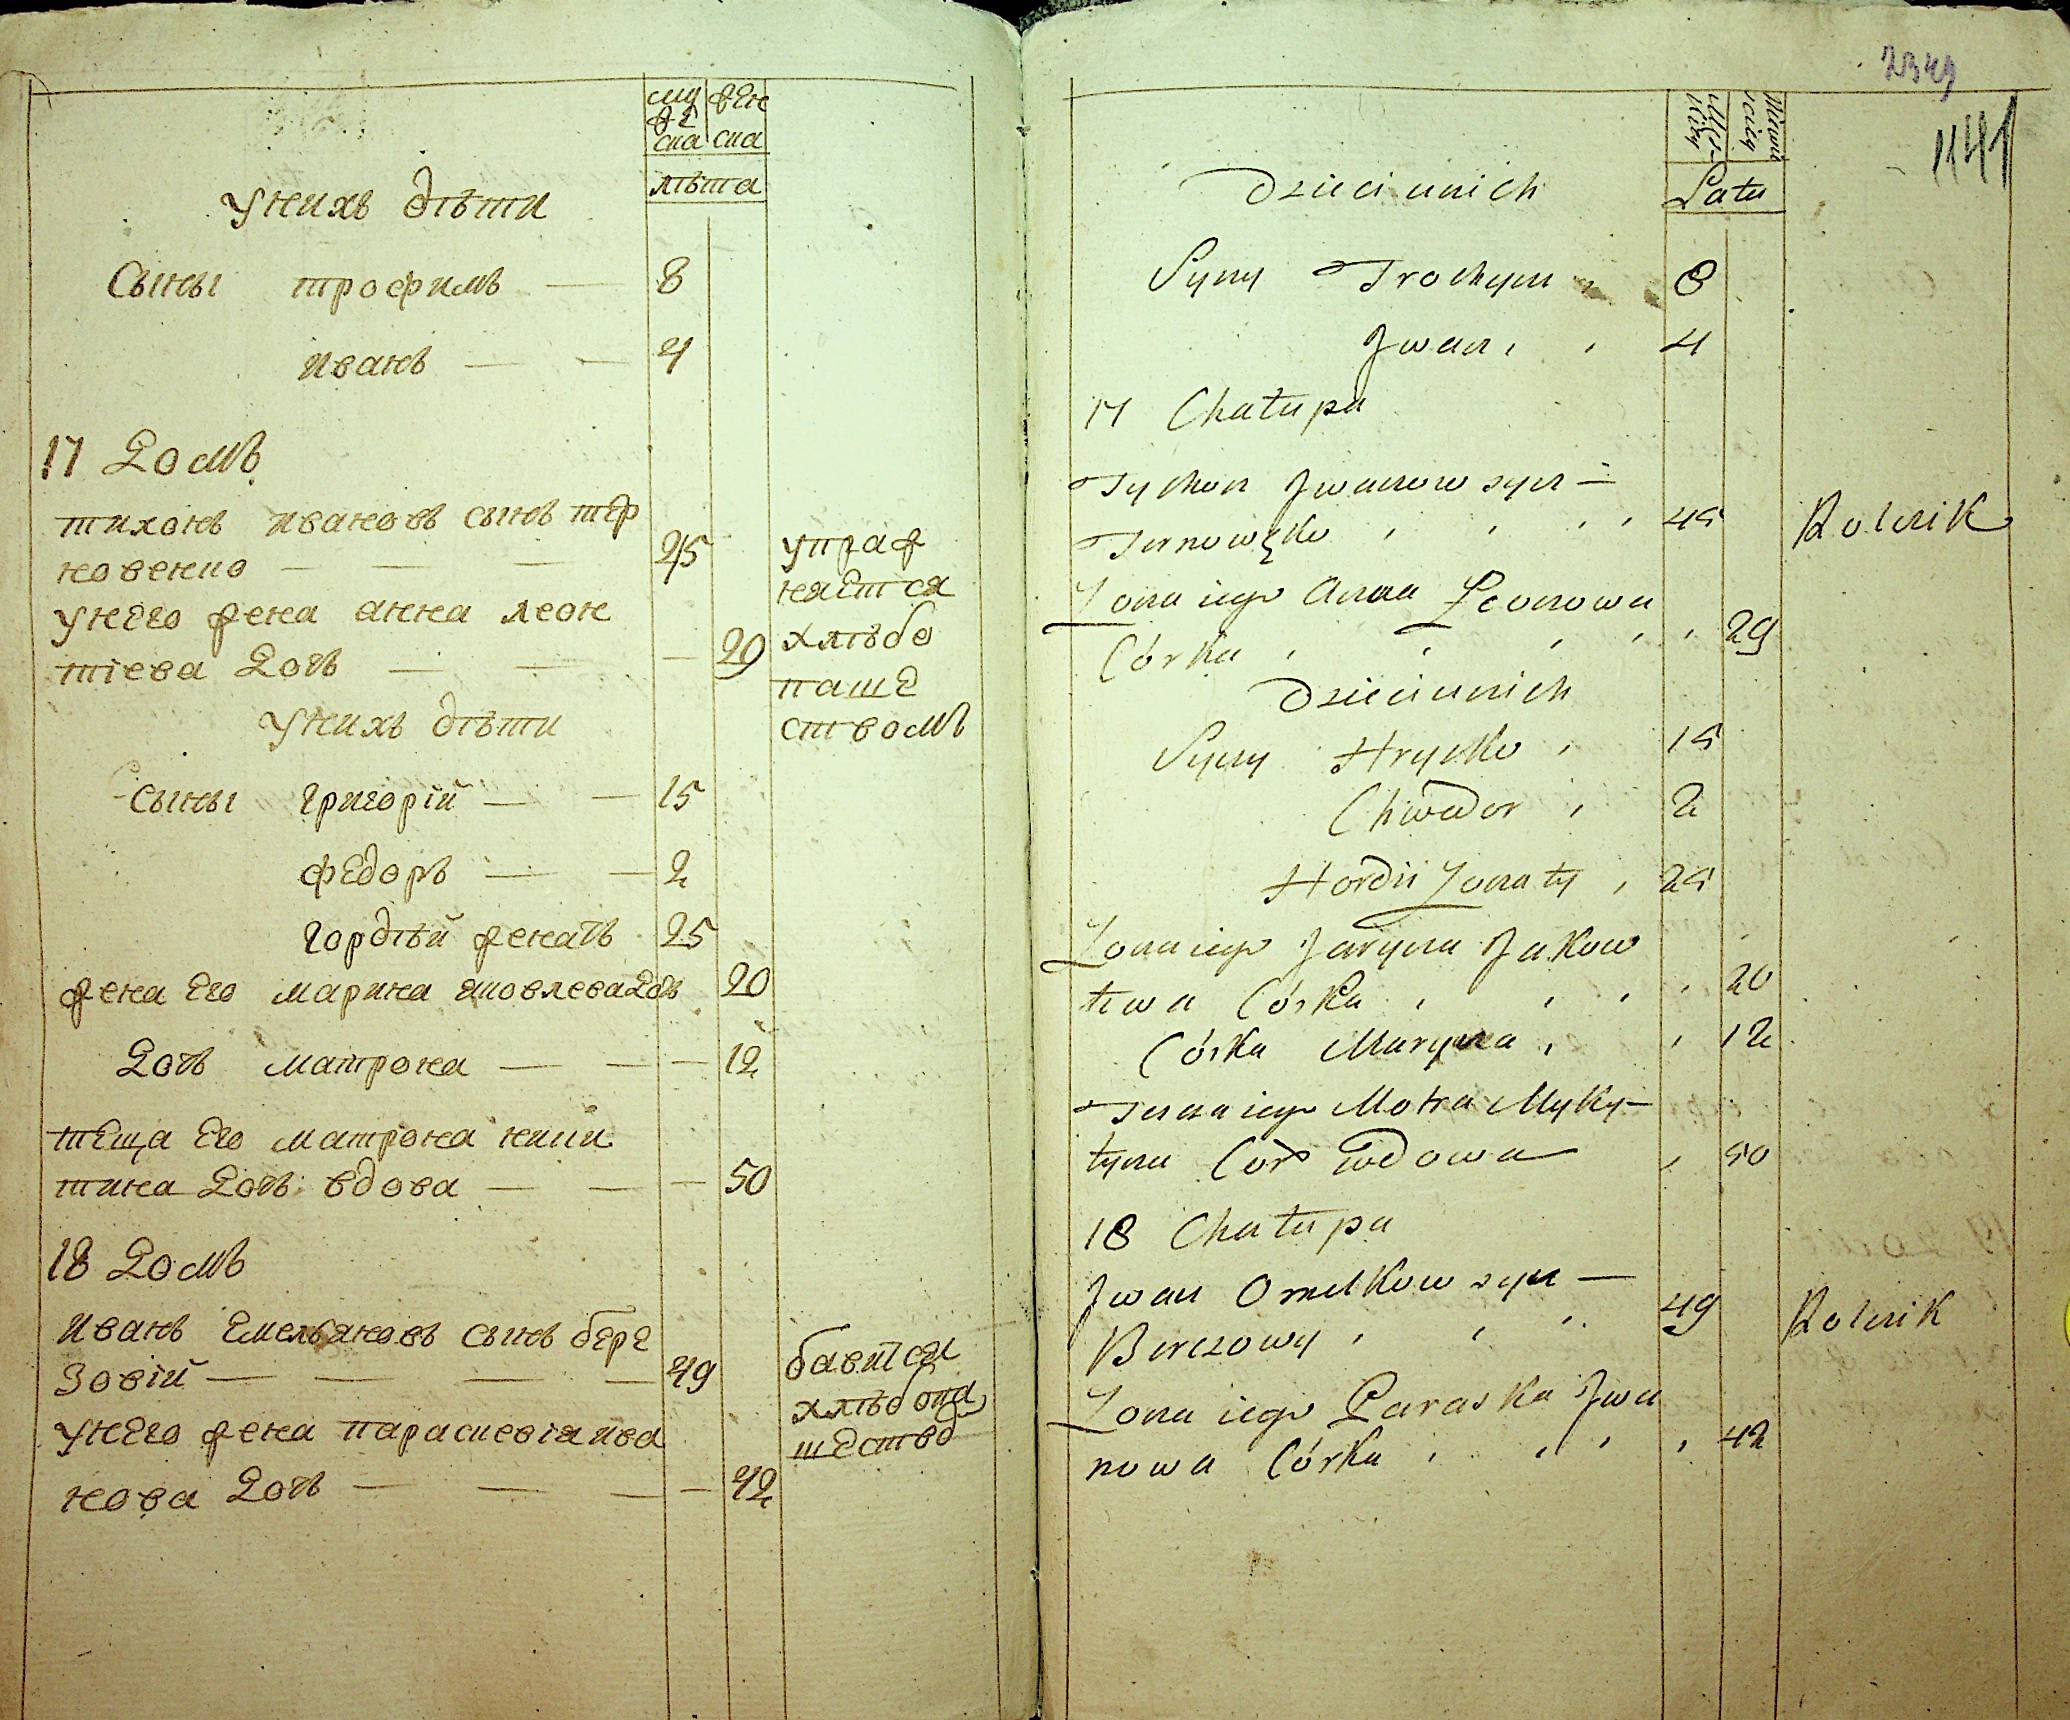 муже ска
жен ска
лѣта
У нихъ дѣти
Сыны трофимъ — 8
иванъ — — 4
17 Домъ
тихонъ ивановъ сынъ тер
новенко — — — 45
у него жена анна леон
тіева Дочь — — — 29
упраж
няется
хлѣбо
паше
ствомъ
У нихъ дѣти
Сыны григорій — — 15
федоръ — — 2
гордѣй женатъ 25
жена его марина яковлева Дочь 20
Дочь матрона — — — 12
теща его матрона ники
тина Дочь вдова — — — 50
18 Домъ
иванъ емельяновъ сынъ бере
зовій — — — — 49
у него жена параскевія ива
нова Дочь — — — — 42
бавится
хлѣбопа
шество
2349
1141
Męs-
kiey
Latu
Dzieci u nich
Syny Trochym , 8
Jwan , , 4
17 Chałupa
Tychon Jwanow syn —
Ternowęko , , , , 45 Rolnik
Żona iego Anna Leonowa
Córka , , , , , 29
Dzieci u nich
Syny Hrycko , 15
Chwedor , 2
Hordii Żonaty , 25
Żona iego Jaryna Jakow
lewa Córka , , , , 20
Córka Maryna , , 12
Tesna iego Motra Myky-
tyna Cór wdowa , 50
18 Chałupa
Jwan Omelkow syn —
Berezowy , , , 49 Rolnik
Żona iego Paraska Jwa
nowa Córka , , , , 42